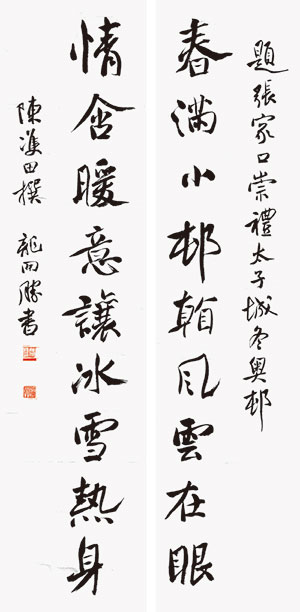 題張家口崇禮太子城冬奧邨
春滿小邨風雲在眼
情含暖意讓冰雪熱身
陳田撰 龍雨勝書